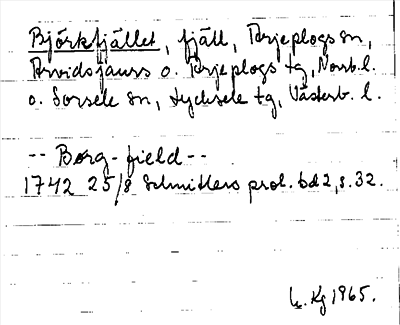 Björkfjället, fjäll, Arjeplogs sn,
Arvidsjaurs o. Arjeplogs tg, Norrb. l.
o. Sorsele sn, Lycksele tg, Västerb. l.
-- Borg-field --
1742 25/8 Schnitlers prot. bd 2, s. 32.
Kg 1965.